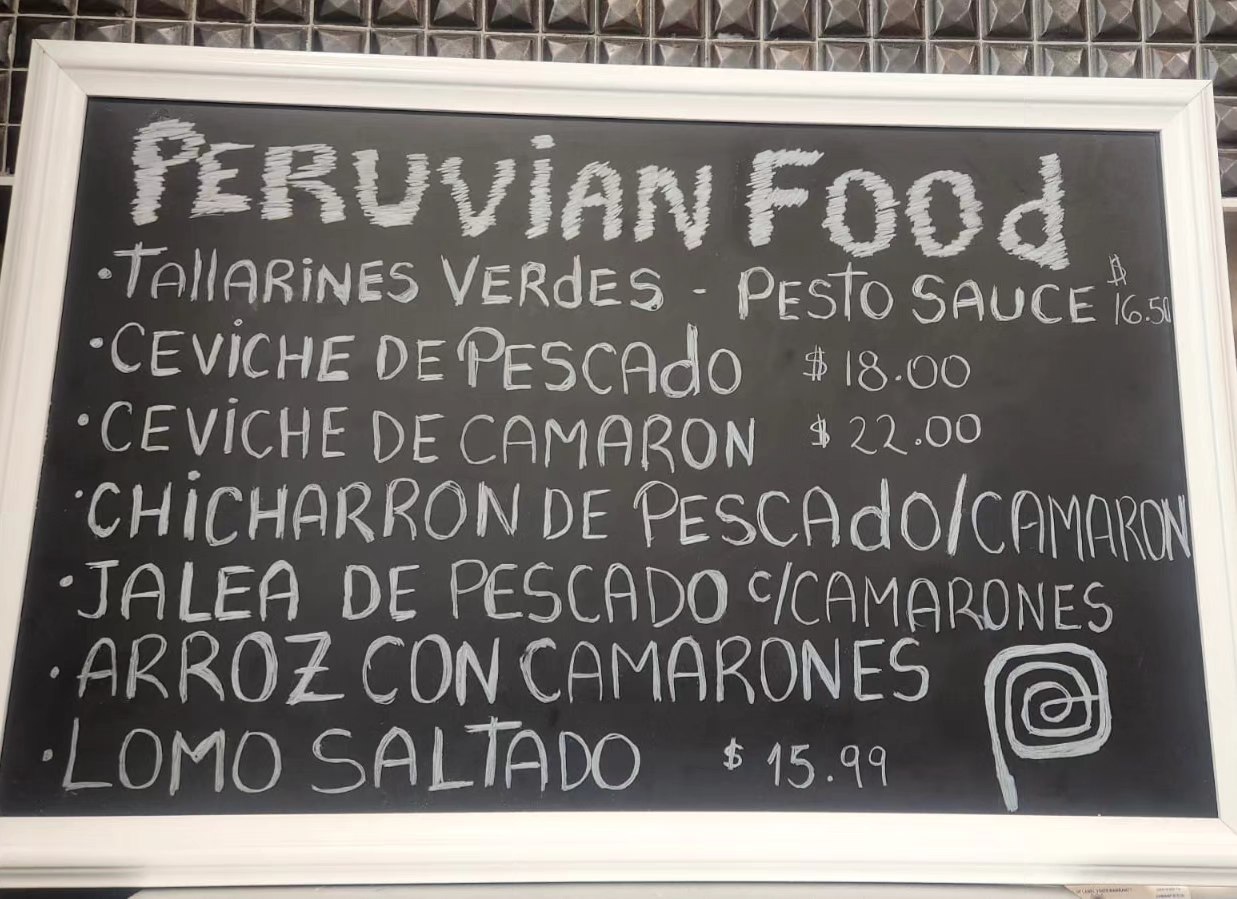 PERUViAN FOOd
·TAllARiNES VERdES - PESTO SAUCE $ 16.50
·CEViCHE DE PESCAdO $18.00
·CEViCHE DE CAMARON $22.00
·CHiCHARRON DE PESCAdO/CAMARON
·JALEA DE PESCADO c/CAMARONES
·ARROZ CON CAMARONES
·LOMO SALTADO $15.99